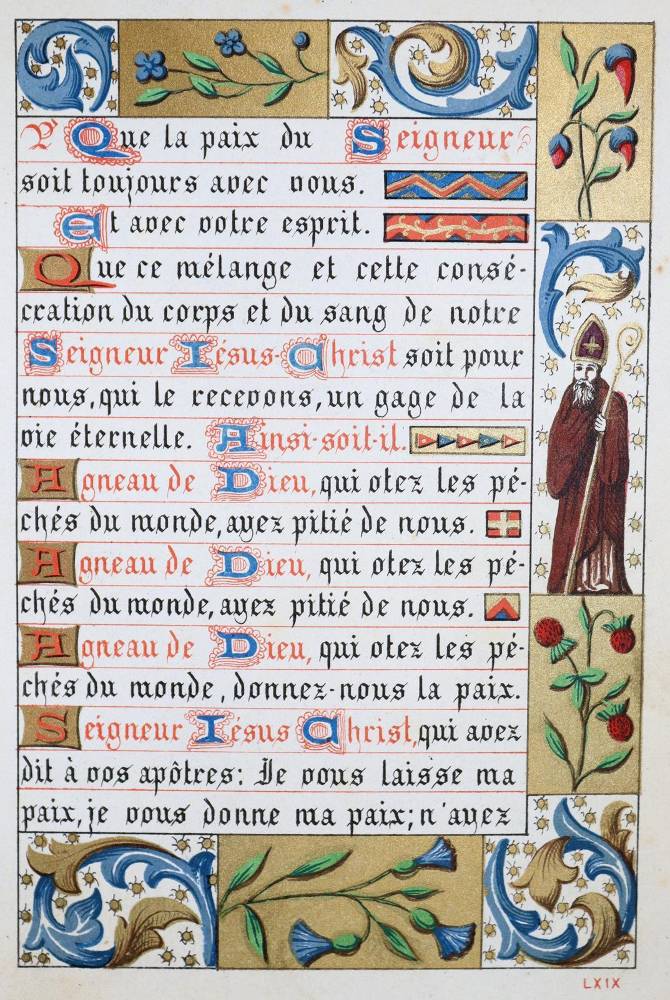 ℣ Que la paix du Seigneur
soit toujours avec vous.
Et avec votre esprit.
Que ce mélange et cette consé-
cration du corps et du sang de notre
Seigneur Iésus-Christ soit pour
nous, qui le recevons, un gage de la
vie éternelle. Ainsi-soit-il.
Agneau de Dieu, qui otez les pé-
chés du monde, ayez pitié de nous.
Agneau de Dieu, qui otez les pé-
chés du monde, ayez pitié de nous.
Agneau de Dieu, qui otez les pé-
chés du monde, donnez-nous la paix.
Seigneur Iésus Christ, qui avez
dit à vos apôtres: Je vous laisse ma
paix, je vous donne ma paix; n'ayez
LXIX